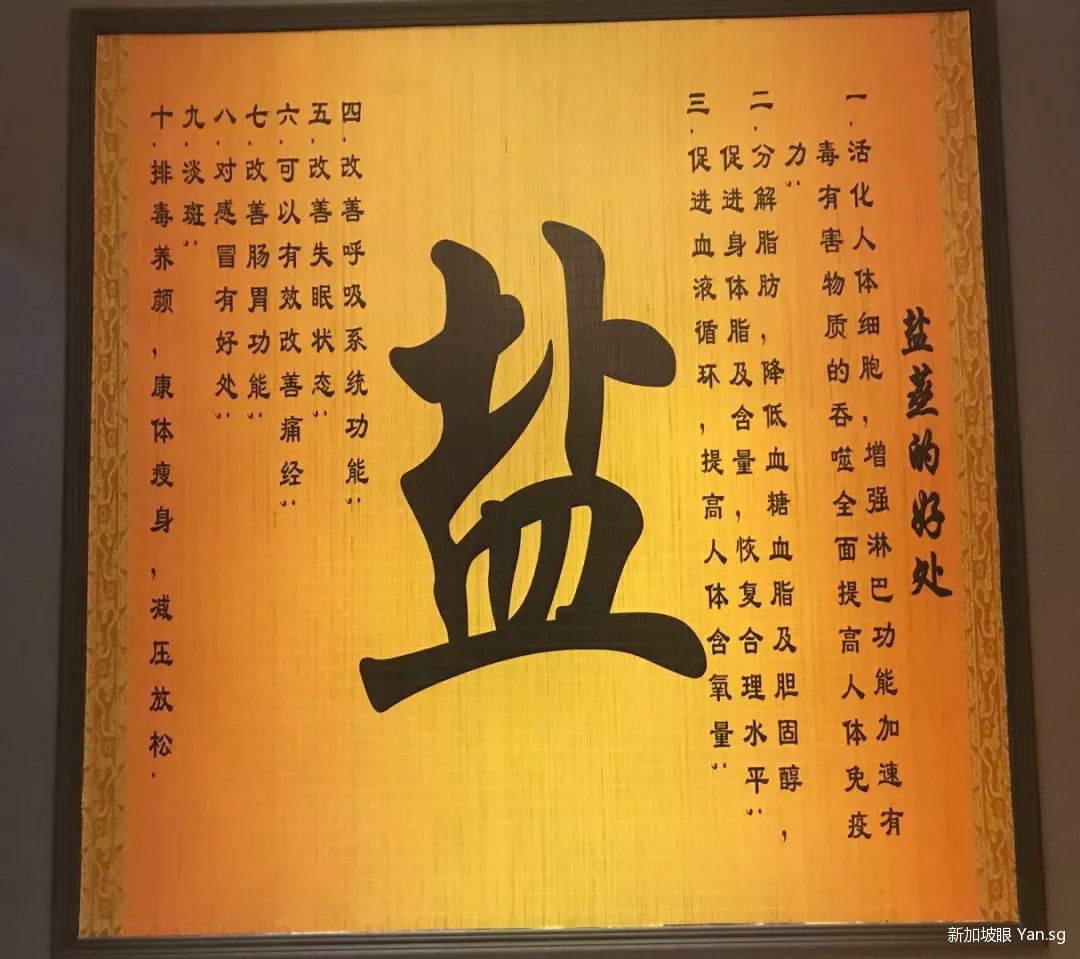 盐蒸的好处
一.活化人体细胞，增强淋巴功能加速有
毒有害物质的吞噬全面提高人体免疫
力；
二.分解脂肪，降低血糖血脂及胆固醇，
促进身体脂及含量，恢复合理水平；
三.促进血液循环，提高人体含氧量；
盐
四.改善呼吸系统功能；
五.改善失眠状态；
六.可以有效改善痛经；
七.改善肠胃功能；
八.对感冒有好处；
九.淡斑；
十.排毒养颜，康体瘦身，减压放松.
新加坡眼 Yan.sg